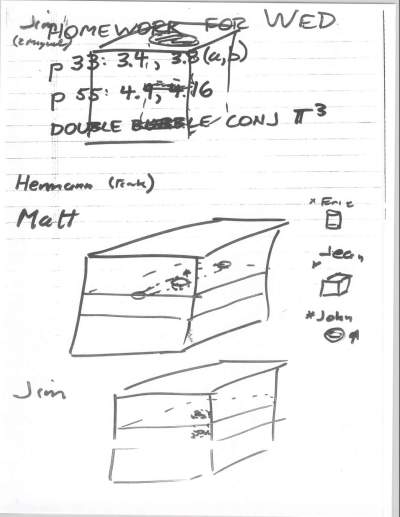 Jim HOMEWORK FOR WED
p 33: 3.4, 3.8 (a,b)
p 55: 4.9, 4.16
DOUBLE BUBBLE CONJ π³
Hermann (Frank)
Matt
* Eric
* Jean
* John
Jim